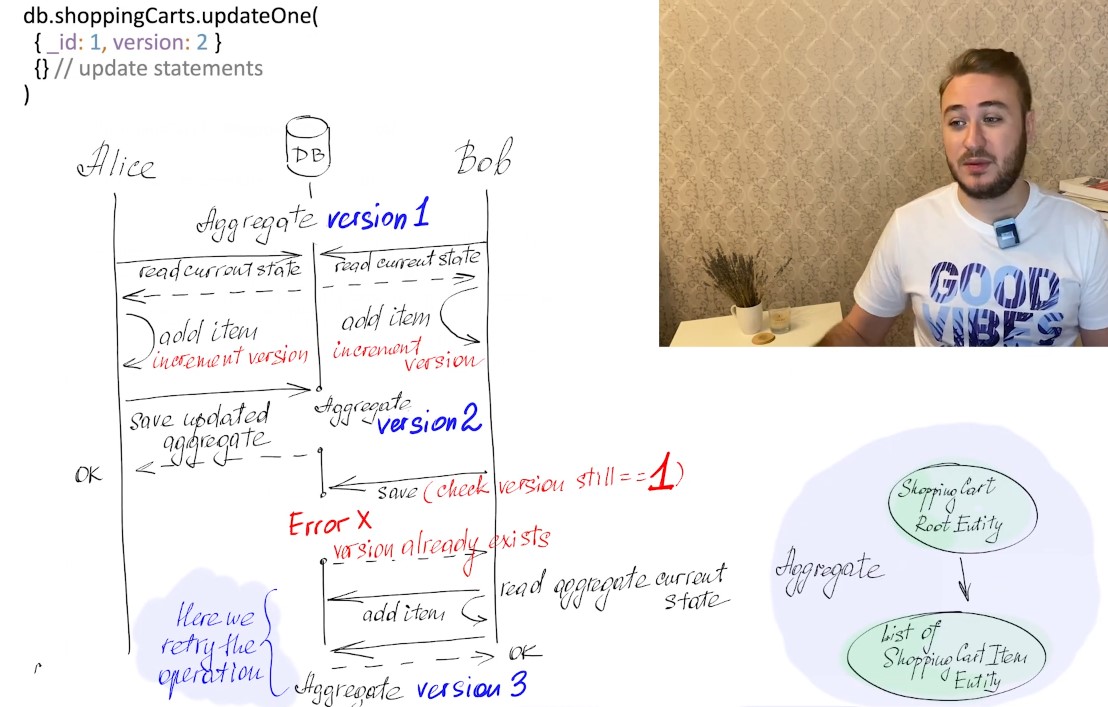 db.shoppingCarts.updateOne(
{ _id: 1, version: 2 }
{} // update statements
)
Alice
DB
Bob
Aggregate version 1
read current state
read current state
add item
increment version
add item
increment
version
save updated
aggregate
Aggregate
version 2
OK
save (check version still == 1)
Error X
version already exists
read aggregate current
state
add item
Here we
retry the
operation
OK
Aggregate version 3
GOOD
VIBES
Shopping Cart
Root Entity
Aggregate
List of
Shopping Cart Item
Entity